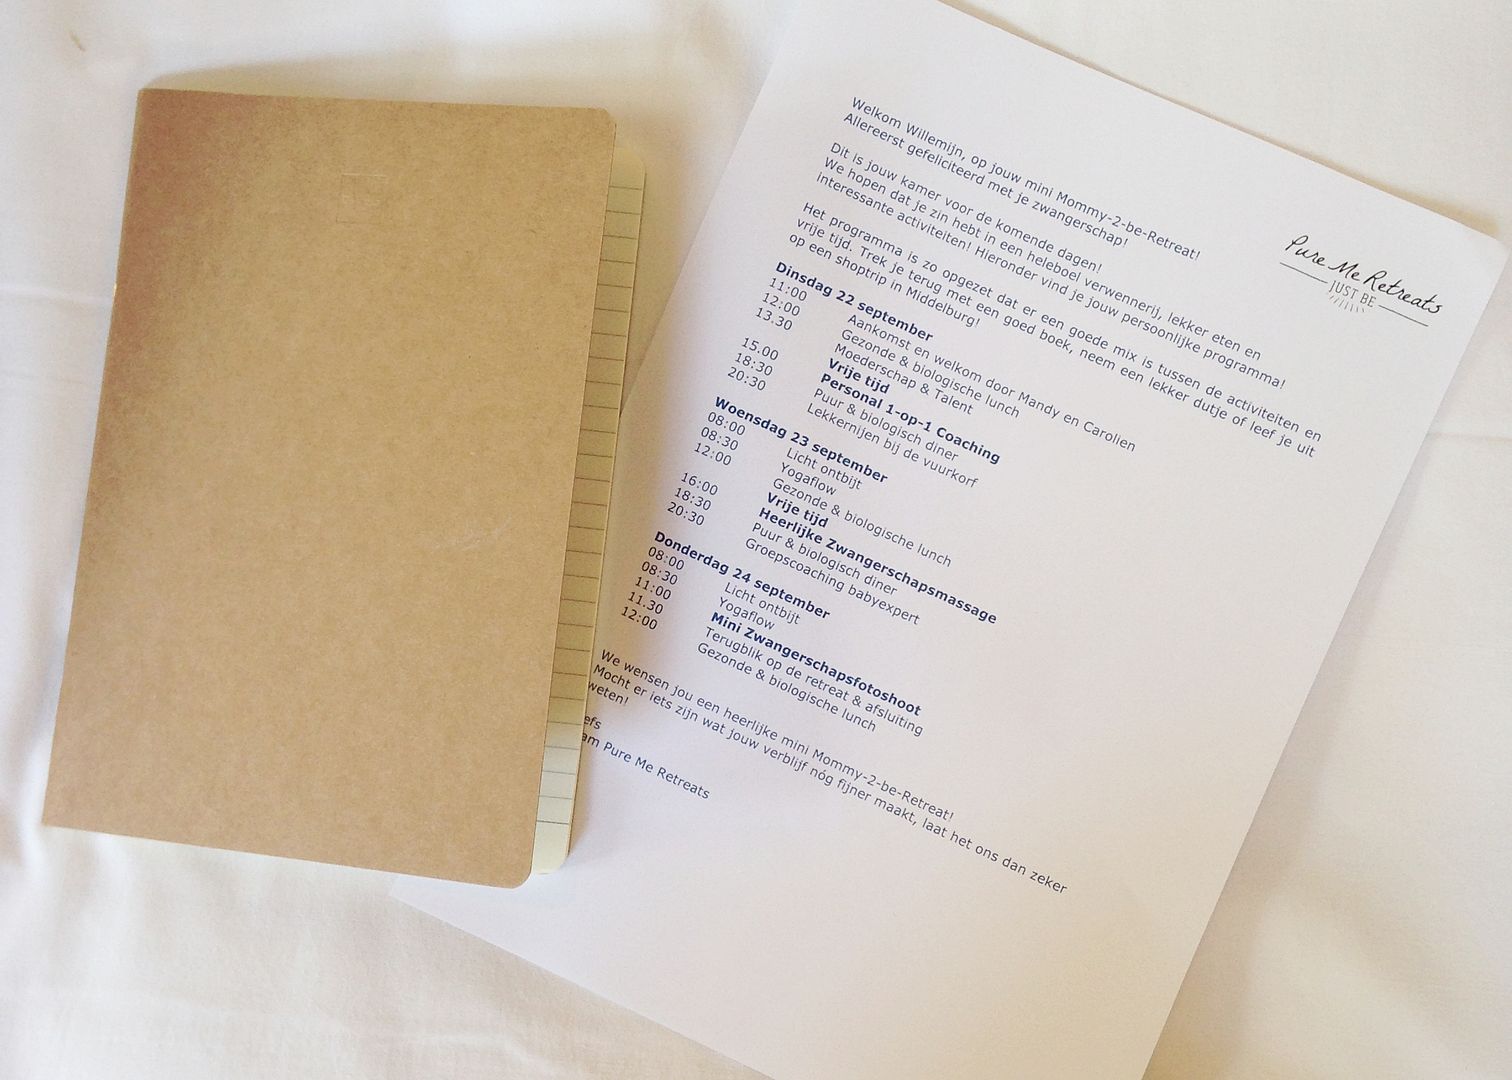 Pure Me Retreats
JUST BE
Welkom Willemijn, op jouw mini Mommy-2-be-Retreat!
Allereerst gefeliciteerd met je zwangerschap!
Dit is jouw kamer voor de komende dagen!
We hopen dat je zin hebt in een heleboel verwennerij, lekker eten en
interessante activiteiten! Hieronder vind je jouw persoonlijke programma!
Het programma is zo opgezet dat er een goede mix is tussen de activiteiten en
vrije tijd. Trek je terug met een goed boek, neem een lekker dutje of leef je uit
op een shoptrip in Middelburg!
Dinsdag 22 september
11:00 Aankomst en welkom door Mandy en Carolien
12:00 Gezonde & biologische lunch
13.30 Moederschap & Talent
Vrije tijd
15.00 Personal 1-op-1 Coaching
18:30 Puur & biologisch diner
20:30 Lekkernijen bij de vuurkorf
Woensdag 23 september
08:00 Licht ontbijt
08:30 Yogaflow
12:00 Gezonde & biologische lunch
Vrije tijd
16:00 Heerlijke Zwangerschapsmassage
18:30 Puur & biologisch diner
20:30 Groepscoaching babyexpert
Donderdag 24 september
08:00 Licht ontbijt
08:30 Yogaflow
11:00 Mini Zwangerschapsfotoshoot
11.30 Terugblik op de retreat & afsluiting
12:00 Gezonde & biologische lunch
We wensen jou een heerlijke mini Mommy-2-be-Retreat!
Mocht er iets zijn wat jouw verblijf nóg fijner maakt, laat het ons dan zeker
weten!
efs
am Pure Me Retreats